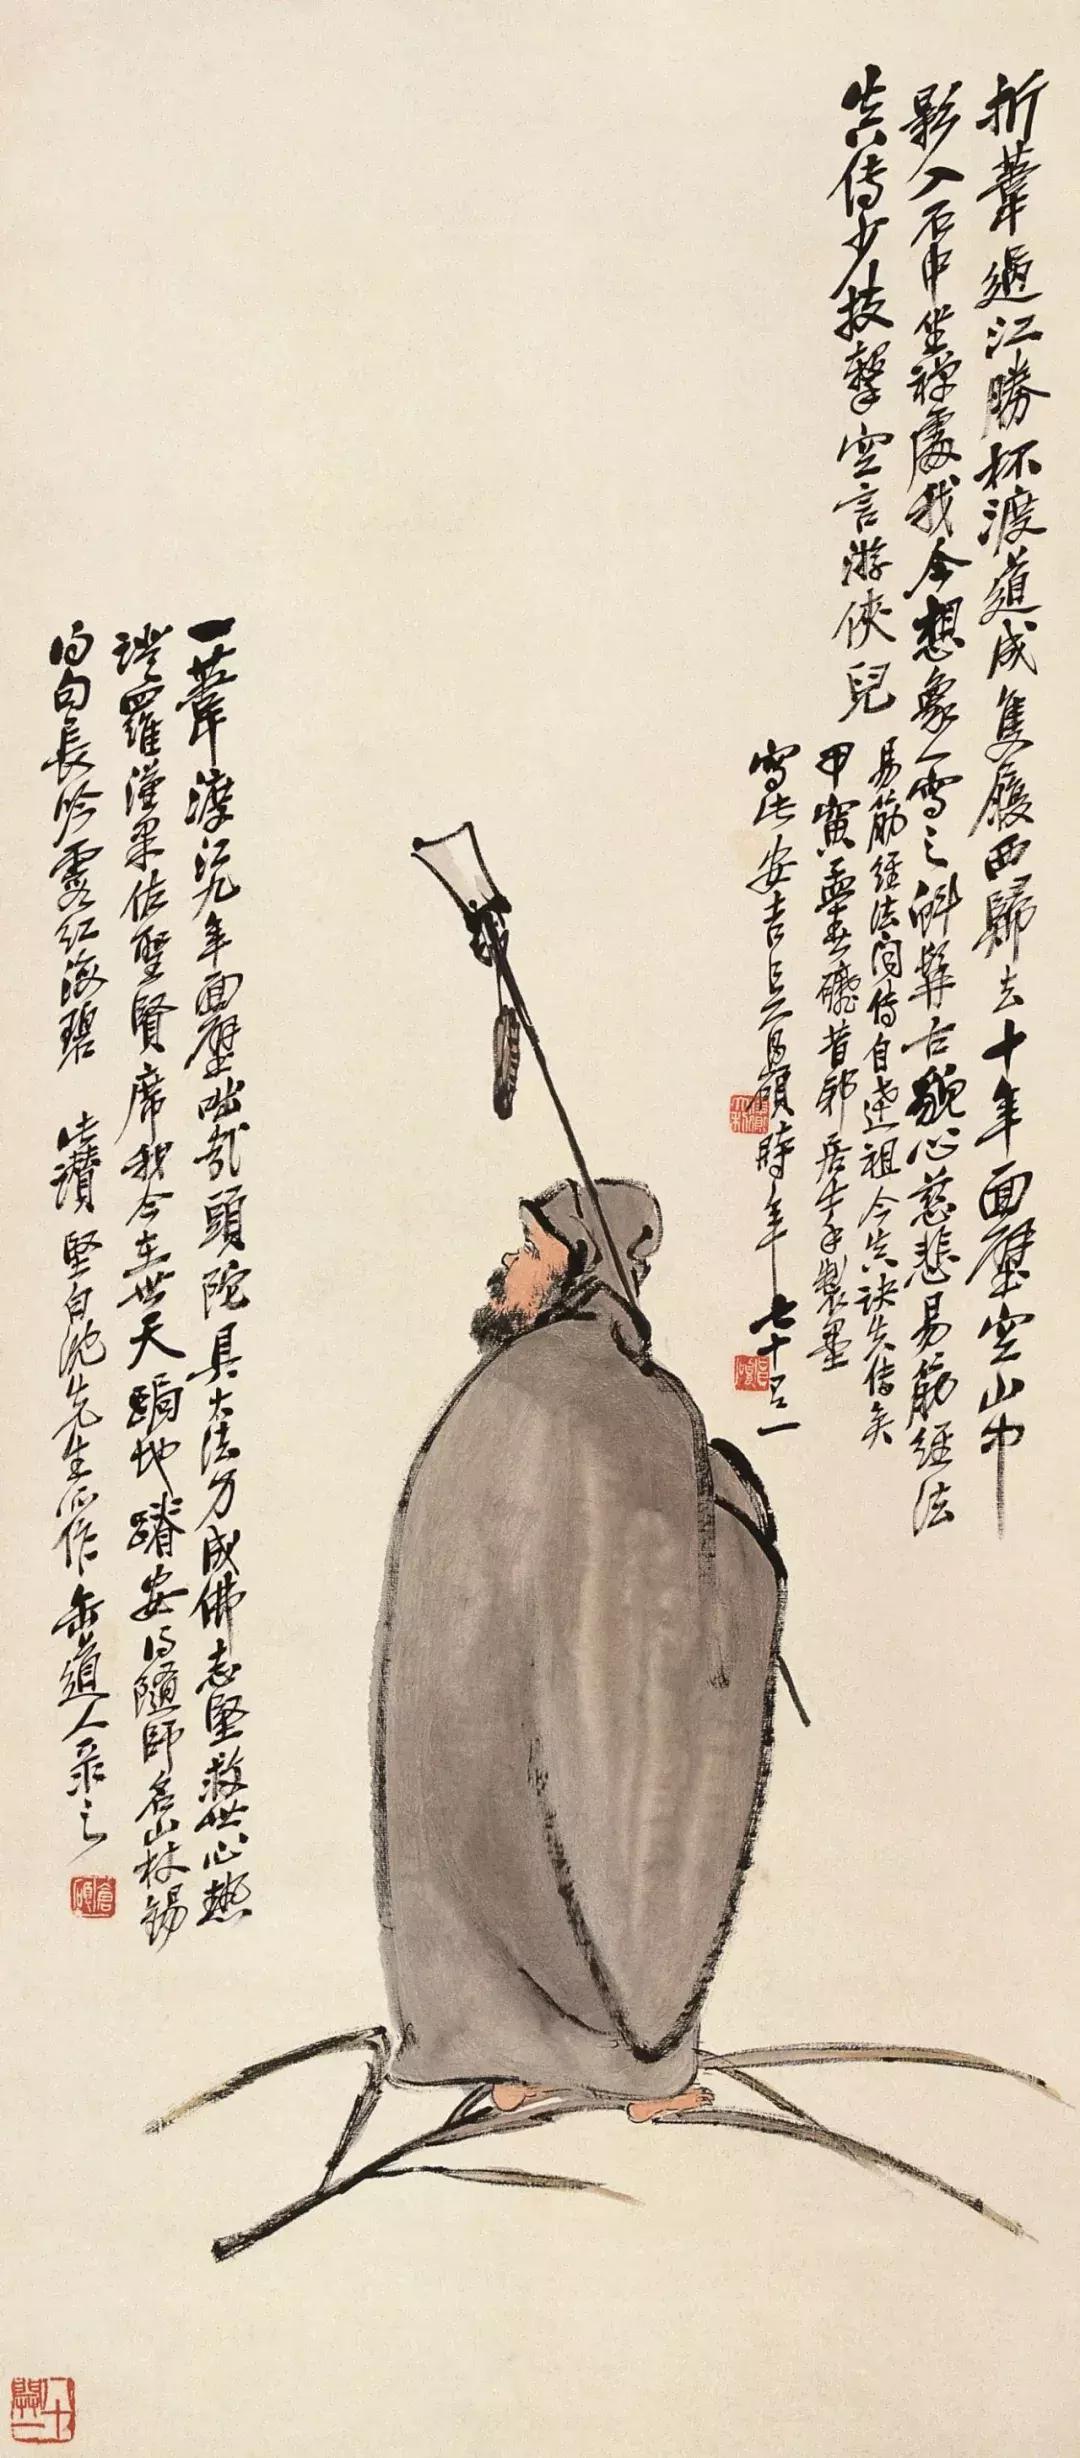 折葦過江勝杯渡道成隻履西歸去十年面壁空山中
影入石中坐禪處我今想象一寫之斛髯古貌心慈悲易筋經法
失傳少技擊空言游俠兒
易筋經法聞傳自達祖今失訣失傳矣
甲寅孟春磯昔邪居牛手製墨
寫此安吉吳昌碩時年七十又一
一葦渡江九年面壁咄哉頭陀具大法力成佛志堅救世心熱
證羅漢果佐聖賢席我今在世天跼地蹐安得隨師名山杖錫
得句長吟霞紅海碧 此讚堅白沈先生所作缶道人录之